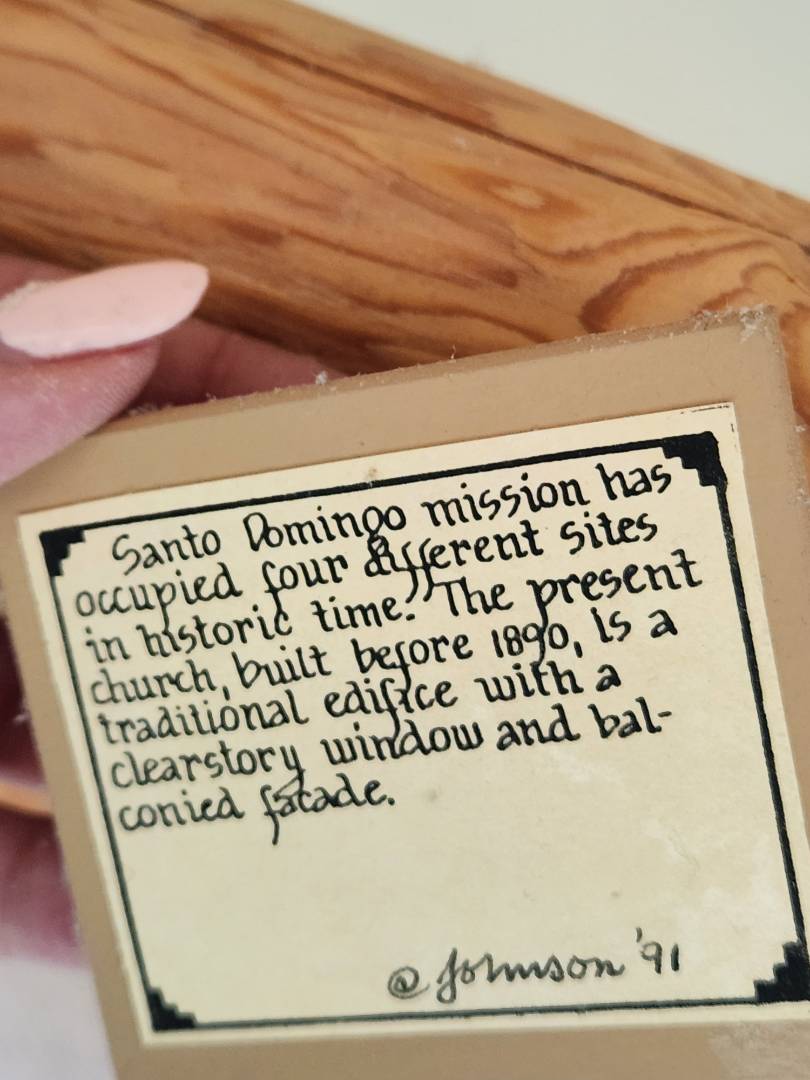 Santo Domingo mission has
occupied four different sites
in historic time. The present
church, built before 1890, is a
traditional edifice with a
clearstory window and bal-
conied facade.
@ Johnson '91